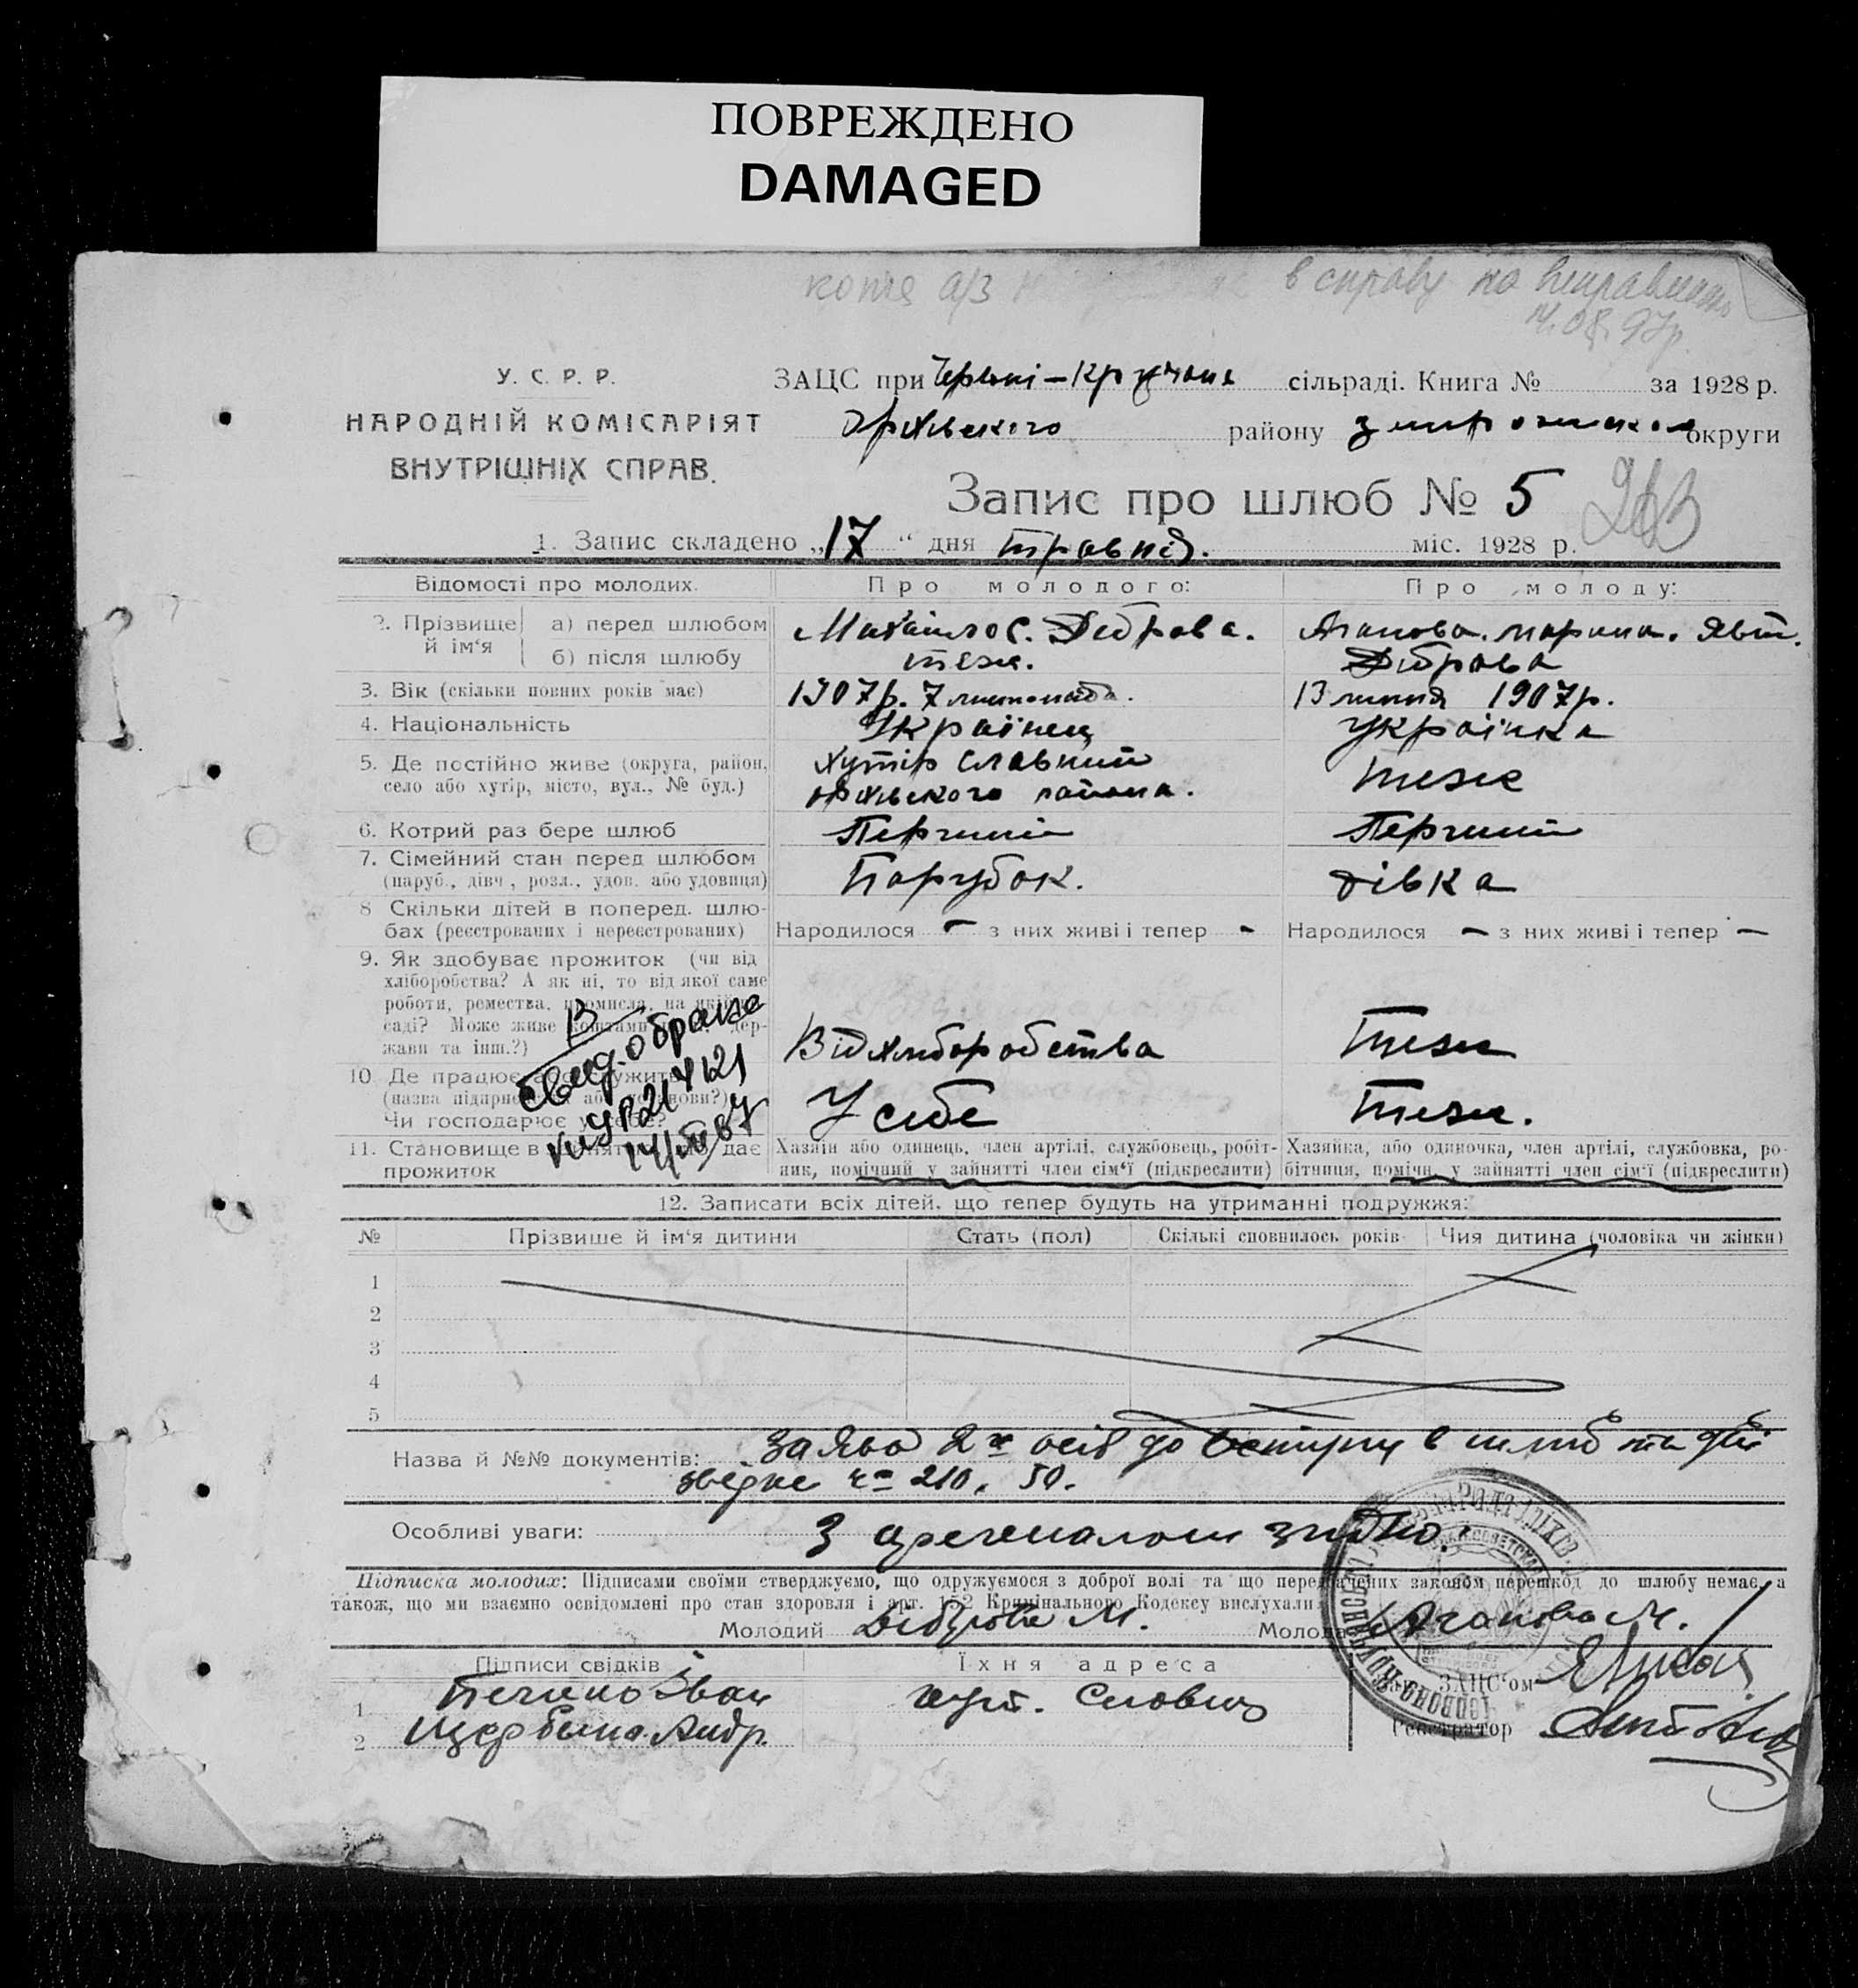 ПОВРЕЖДЕНО
DAMAGED
копія а/з в справу по
14.08.97р.
У. С. Р. Р.
НАРОДНІЙ КОМІСАРІЯТ
ВНУТРІШНІХ СПРАВ.
ЗАЦС при сільраді. Книга № за 1928 р.
району округи
Запис про шлюб № 5
1. Запис складено „17“ дня травня. міс. 1928 р.
Відомості про молодих. Про молодого: Про молоду:
2. Прізвище й ім‘я а) перед шлюбом Михайло С. Діброва. Агапова. марина. Явт.
б) після шлюбу теж. Діброва
3. Вік (скільки повних років має) 1907р. 7 листопада. 13 липня 1907р.
4. Національність Українец Українка
5. Де постійно живе (округа, район, село або хутір, місто, вул., № буд.) Хутір Славний района. теж
6. Котрий раз бере шлюб Перший Перший
7. Сімейний стан перед шлюбом (паруб., дівч., розл., удов. або удовиця) Парубок. дівка
8 Скільки дітей в поперед. шлюбах (реєстрованих і нереєстрованих) Народилося – з них живі і тепер - Народилося – з них живі і тепер –
9. Як здобуває прожиток (чи від
хліборобства? А як ні, то від якої саме
роботи, ремества, промисла, на якій
саді? Може живе коштами держави та інш.?) Від хліборобства Теж
В
свид. о браке
14/
10. Де працює або служить
(назва підприєм. або установи?)
Чи господарює у себе? У себе Теж.
11. Становище в занятті, що дає прожиток
Хазяїн або одинець, член артілі, службовець, робітник, помічний у зайнятті член сім‘ї (підкреслити)
Хазяйка, або одиночка, член артілі, службовка, робітниця, помічн. у зайнятті член сім‘ї (підкреслити)
12. Записати всіх дітей, що тепер будуть на утриманні подружжя:
№ Прізвище й ім‘я дитини Стать (пол) Скількі сповнилось років Чия дитина (чоловіка чи жінки)
1
2
3
4
5
Назва й №№ документів: Заява 2х осіб до вступу в шлюб та дві
210, 50.
Особливі уваги: З згідно.
Підписка молодих: Підписами своїми стверджуємо, що одружуємося з доброї волі та що передбачених законом перешкод до шлюбу немає, а
також, що ми взаємно освідомлені про стан здоровля і арт. 152 Кримінального Кодексу вислухали.
Молодий Діброва М. Молода Агапова М.
Підписи свідків Їхня адреса
ЗАЦС‘ом
1 Іван хут. Славний
Реєстратор
2 Щербина Андр.